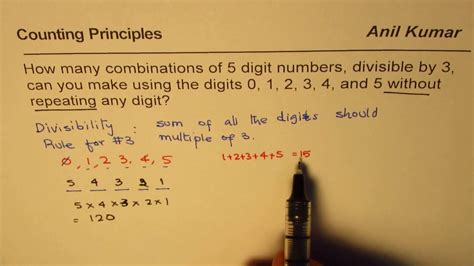 Counting Principles Anil Kumar
How many combinations of 5 digit numbers, divisible by 3,
can you make using the digits 0, 1, 2, 3, 4, and 5 without
repeating any digit?
Divisibility : sum of all the digits should
Rule for #3 multiple of 3.
0, 1, 2, 3, 4, 5 1+2+3+4+5 = 15
5 4 3 2 1
5 x 4 x 3 x 2 x 1
= 120